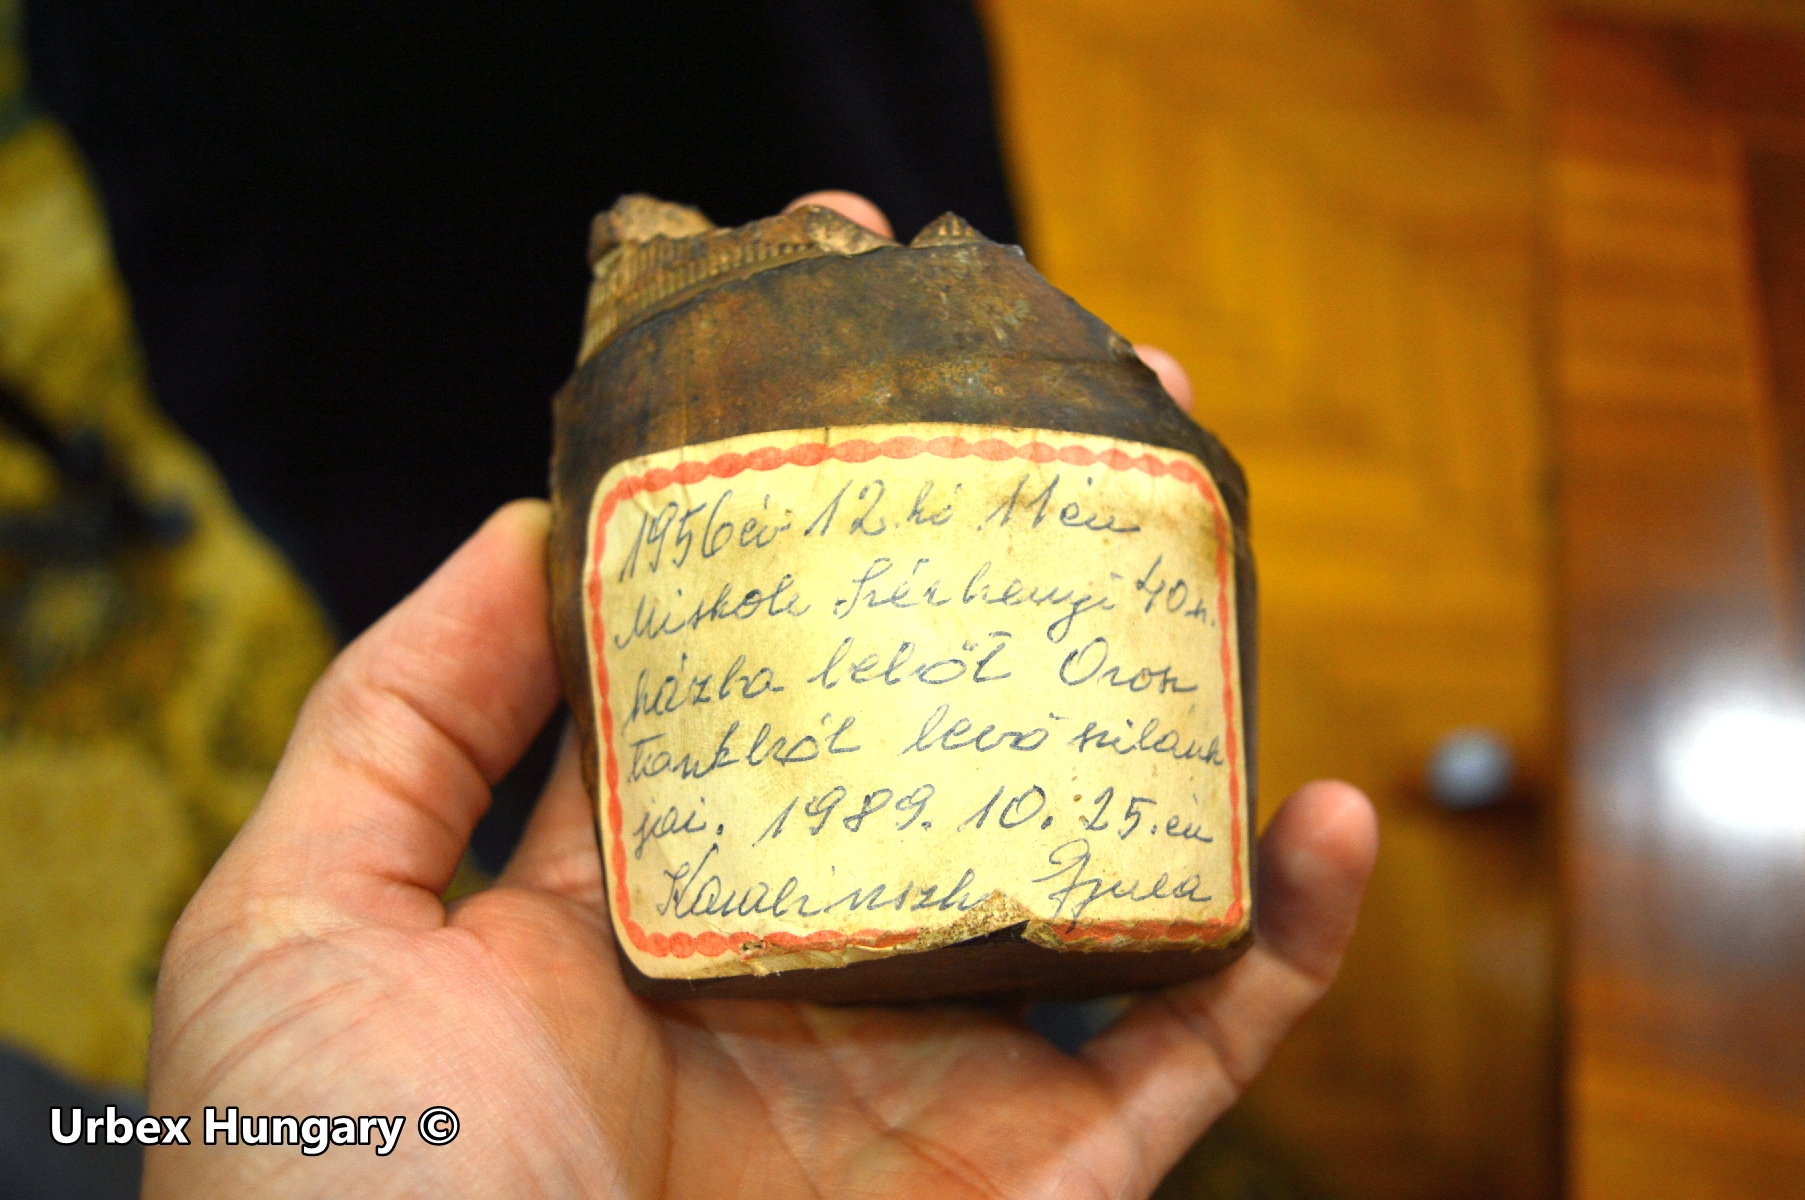 1956 év 12. hó 11 én
Miskolc Széchenyi 40 sz.
házba belőtt Orosz
tankból levő szilánk
jai. 1989. 10. 25. én
Kavalinszki Gyula
Urbex Hungary ©